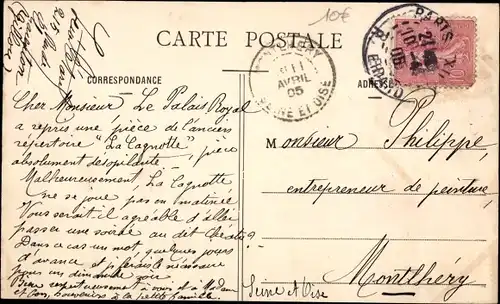 10€
CARTE POSTALE
CORRESPONDANCE
ADRESSE
11
AVRIL
05
SEINE ET OISE
PARIS
05
Cher Monsieur, Le Palais Royal
a repris une pièce de l'ancien
répertoire "La Cagnotte", pièce
absolument désopilante.
Malheureusement, La Cagnotte
ne se joue pas en matinée
Vous serait il agréable d'aller
passer une soirée au dit théâtre?
Dans ce cas un mot quelques jours
d'avance, et je ferais le nécessaire
pour un dimanche soir.
Bien respectueusement à vous et à Madame
et bons souvenirs à la petite famille.
Monsieur Philippe,
entrepreneur de peinture,
Montlhéry
Seine et Oise